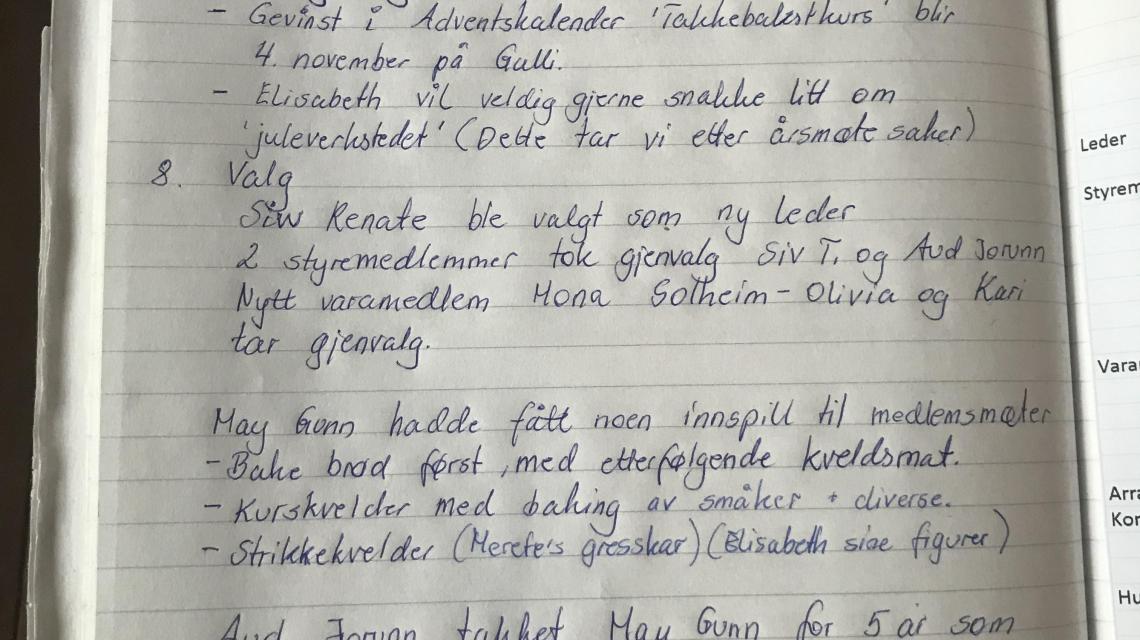 - Gevinst i Adventskalender 'Takkebakstkurs' blir
4. november på Gulli.
- Elisabeth vil veldig gjerne snakke litt om
'juleverkstedet' (Dette tar vi etter årsmøte saker)
8. Valg
Siw Renate ble valgt som ny leder
2 styremedlemmer tok gjenvalg Siv T. og Aud Jorunn
Nytt varamedlem Mona Solheim - Olivia og Kari
tar gjenvalg.
May Gunn hadde fått noen innspill til medlemsmøter
- Bake brød først, med etterfølgende kveldsmat.
- Kurskvelder med baking av småker + diverse.
- Strikkekvelder (Merete's gresskar) (Elisabeth sine figurer)
Aud Jorunn takket May Gunn for 5 år som
Leder
Styrem
Vara
Arra
Kor
Hu